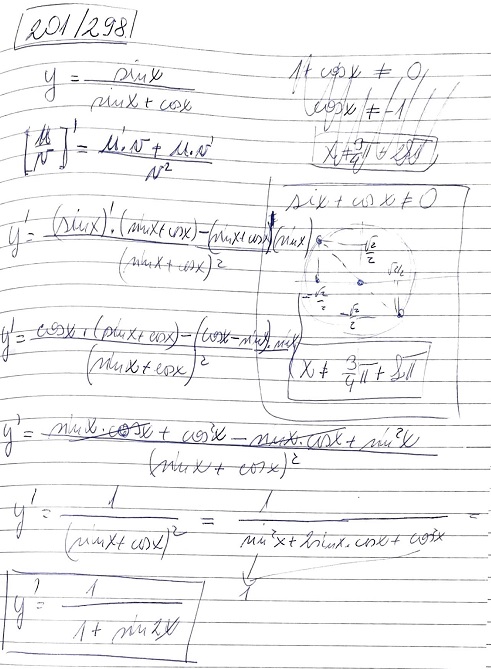 201/298
y = sinx / (sinx + cosx)
1 + cosx ≠ 0
cosx ≠ -1
[u/v]' = (u'·v + u·v') / v²
six + cosx ≠ 0
√2/2
√2/2
-√2/2
-√2/2
x ≠ 3/4 π + 2π
y' = ((sinx)'·(sinx+cosx) - (sinx+cosx)'(sinx)) / (sinx+cosx)²
y' = (cosx·(sinx+cosx) - (cosx-sinx)·sinx) / (sinx+cosx)²
y' = (sinx·cosx + cos²x - sinx·cosx + sin²x) / (sinx + cosx)²
y' = 1 / (sinx+cosx)² = 1 / (sin²x + 2sinx·cosx + cos²x) =
1
y' = 1 / (1 + sin2x)